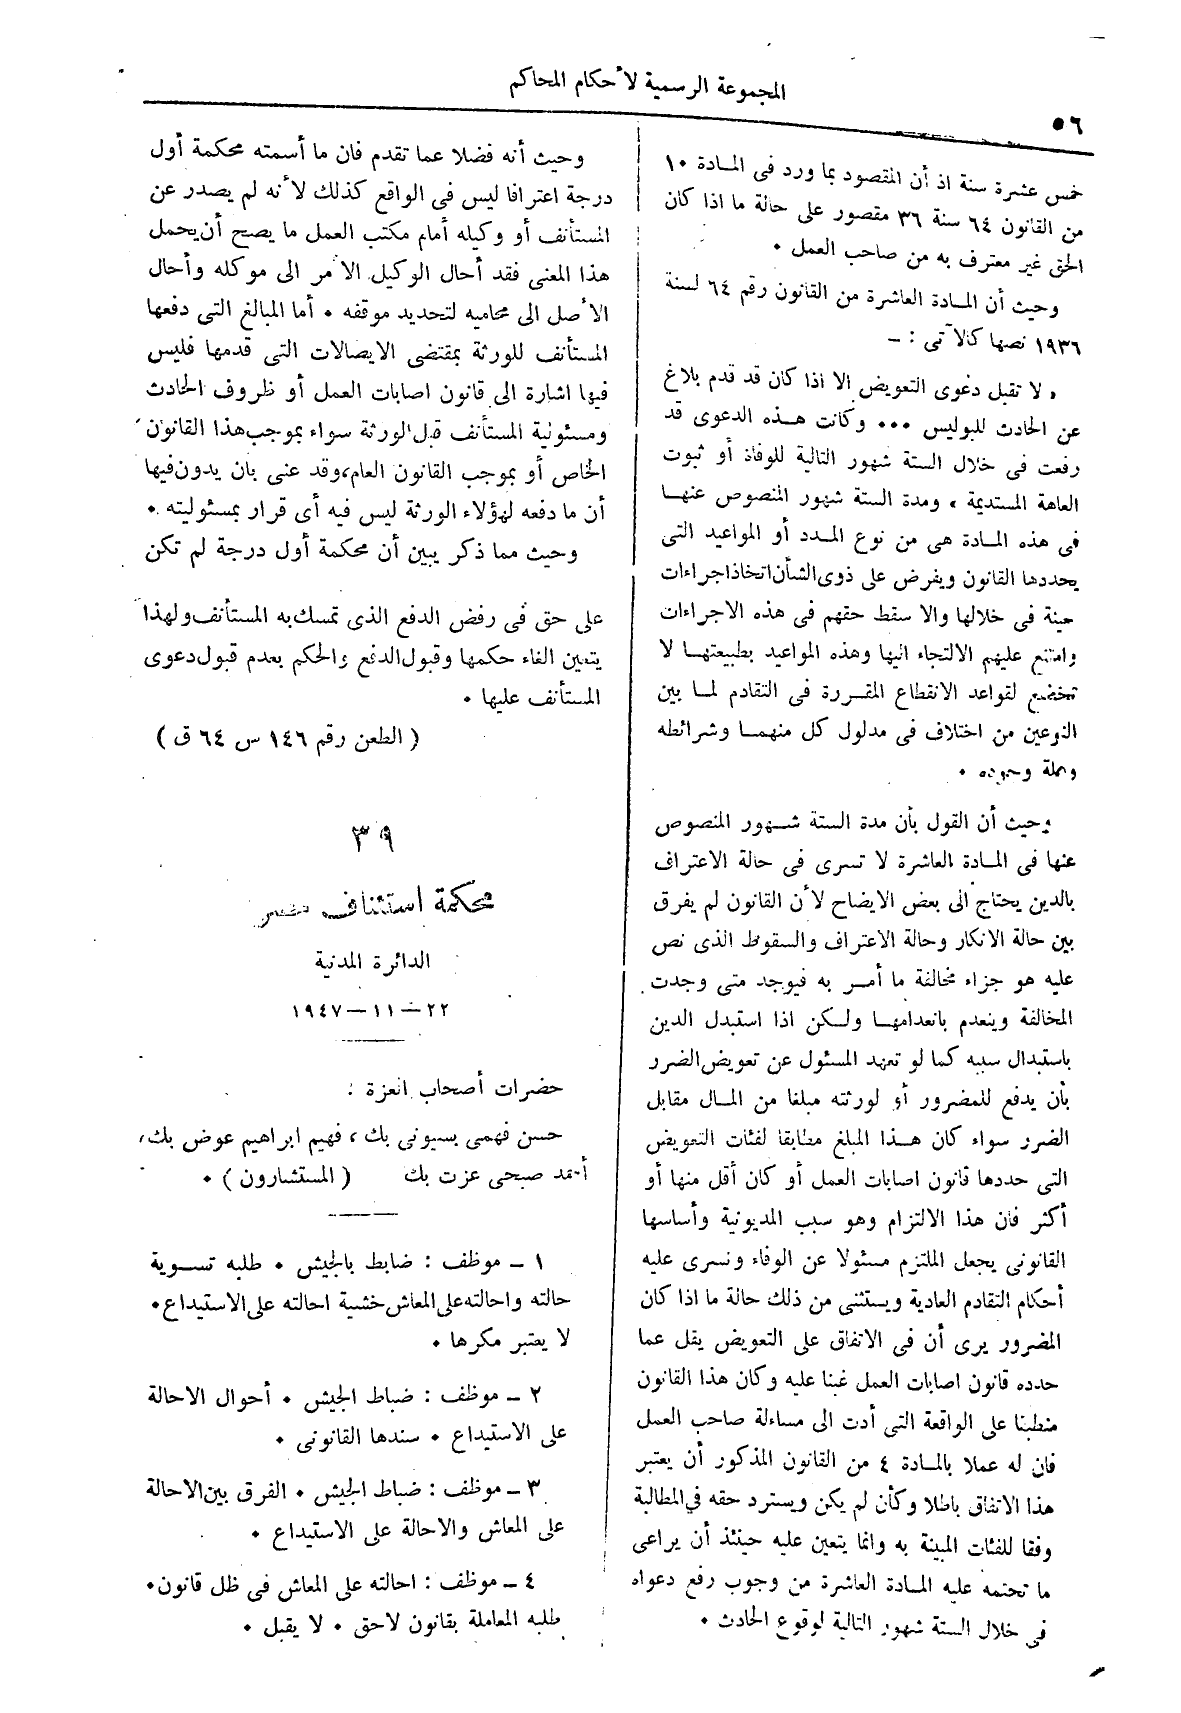 المجموعة الرسمية لأحكام المحاكم
٥٦
خمس عشرة سنة اذ أن المقصود بما ورد فى المادة ١٠
من القانون ٦٤ سنة ٣٦ مقصور على حالة ما اذا كان
الحق غير معترف به من صاحب العمل .
وحيث أن المادة العاشرة من القانون رقم ٦٤ لسنة
١٩٣٦ نصها كالآتى : —
« لا تقبل دعوى التعويض الا اذا كان قد قدم بلاغ
عن الحادث للبوليس ... وكانت هذه الدعوى قد
رفعت فى خلال الستة شهور التالية للوفاة أو ثبوت
العاهة المستديمة » ومدة الستة شهور المنصوص عنها
فى هذه المادة هى من نوع المدد أو المواعيد التى
يحددها القانون ويفرض على ذوى الشأن اتخاذ اجراءات
معينة فى خلالها والا سقط حقهم فى هذه الاجراءات
وامتنع عليهم الالتجاء اليها وهذه المواعيد بطبيعتها لا
تخضع لقواعد الانقطاع المقررة فى التقادم لما بين
النوعين من اختلاف فى مدلول كل منهما وشرائطه
وعلة وجوده .
وحيث أن القول بأن مدة الستة شهور المنصوص
عنها فى المادة العاشرة لا تسرى فى حالة الاعتراف
بالدين يحتاج الى بعض الايضاح لأن القانون لم يفرق
بين حالة الانكار وحالة الاعتراف والسقوط الذى نص
عليه هو جزاء مخالفة ما أمر به فيوجد متى وجدت
المخالفة وينعدم بانعدامها ولكن اذا استبدل الدين
باستبدال سببه كما لو تعهد المسئول عن تعويض الضرر
بأن يدفع للمضرور أو لورثته مبلغا من المال مقابل
الضرر سواء كان هذا المبلغ مطابقا لفئات التعويض
التى حددها قانون اصابات العمل أو كان أقل منها أو
أكثر فان هذا الالتزام وهو سبب المديونية وأساسها
القانونى يجعل الملتزم مسئولا عن الوفاء وتسرى عليه
أحكام التقادم العادية ويستثنى من ذلك حالة ما اذا كان
المضرور يرى أن فى الاتفاق على التعويض يقل عما
حدده قانون اصابات العمل غبنا عليه وكان هذا القانون
منطبقا على الواقعة التى أدت الى مساءلة صاحب العمل
فان له عملا بالمادة ٤ من القانون المذكور أن يعتبر
هذا الاتفاق باطلا وكأن لم يكن ويسترد حقه في المطالبة
وفقا للفئات المبينة به وانما يتعين عليه حينئذ أن يراعى
ما تحتمه عليه المادة العاشرة من وجوب رفع دعواه
فى خلال الستة شهور التالية لوقوع الحادث .
وحيث أنه فضلا عما تقدم فان ما أسمته محكمة أول
درجة اعترافا ليس فى الواقع كذلك لأنه لم يصدر عن
المستأنف أو وكيله أمام مكتب العمل ما يصح أن يحمل
هذا المعنى فقد أحال الوكيل الأمر الى موكله وأحال
الأصل الى محاميه لتحديد موقفه . أما المبالغ التى دفعها
المستأنف للورثة بمقتضى الايصالات التى قدمها فليس
فيها اشارة الى قانون اصابات العمل أو ظروف الحادث
ومسئولية المستأنف قبل الورثة سواء بموجب هذا القانون
الخاص أو بموجب القانون العام، وقد عنى بان يدون فيها
أن ما دفعه لهؤلاء الورثة ليس فيه أى قرار بمسئوليته .
وحيث مما ذكر يبين أن محكمة أول درجة لم تكن
على حق فى رفض الدفع الذى تمسك به المستأنف ولهذا
يتعين الغاء حكمها وقبول الدفع والحكم بعدم قبول دعوى
المستأنف عليها .
( الطعن رقم ١٤٦ س ٦٤ ق )
٣٩
محكمة استئناف مصر
الدائرة المدنية
٢٢ — ١١ — ١٩٤٧
حضرات أصحاب العزة :
حسن فهمى بسيونى بك ، فهيم ابراهيم عوض بك ،
أحمد صبحى عزت بك ( المستشارون ) .
١ — موظف : ضابط بالجيش . طلبه تسوية
حالته واحالته على المعاش خشية احالته على الاستيداع .
لا يعتبر مكرها .
٢ — موظف : ضباط الجيش . أحوال الاحالة
على الاستيداع . سندها القانونى .
٣ — موظف : ضباط الجيش . الفرق بين الاحالة
على المعاش والاحالة على الاستيداع .
٤ — موظف : احالته على المعاش فى ظل قانون .
طلبه المعاملة بقانون لاحق . لا يقبل .